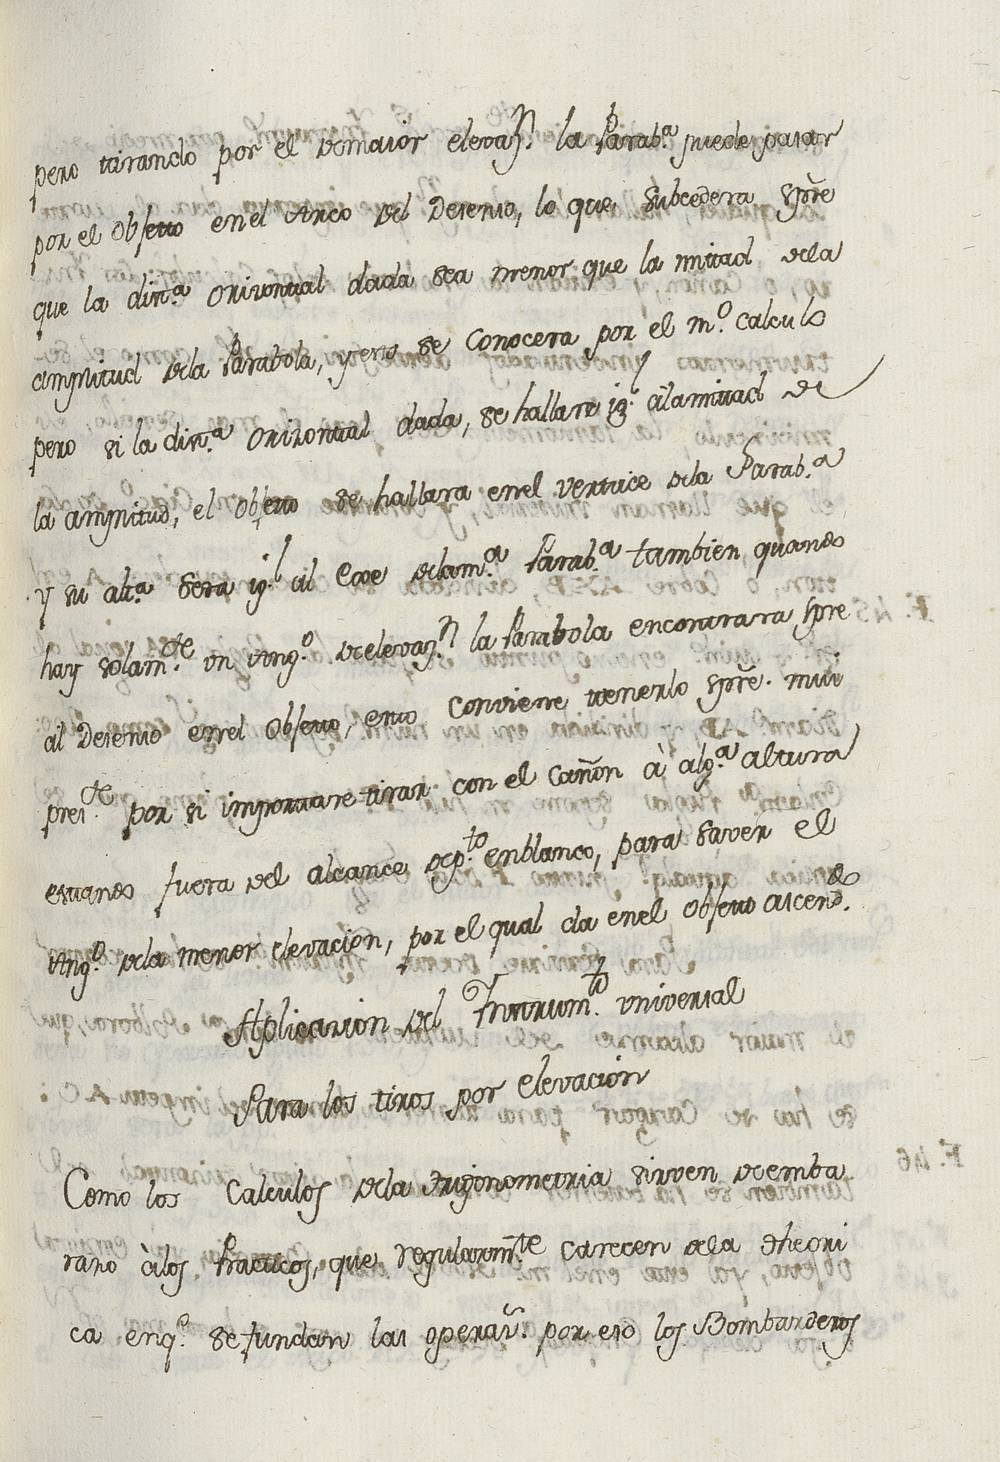 pero tirando por el de maior elevaz.n la Parab.a puede pasar
por el objetto en el Arco del Desenso, lo que subcedera spre
que la dist.a orizontal dada sea menor que la mitad dela
amplitud dela Parabola, y esto se conocera por el m.o calculo
pero si la dist.a orizontal dada, se hallare ig.l ala mitad de
la amplitud, el objetto se hallara en el vertice dela Parab.a
y su alt.a sera ig.l al Exe dela m.a Parab.a tambien, quando
hay solam.te un Ang.o de elevaz.n la Parabola encontrara spre
al Desenso en el objetto, esto conviene tenerlo spre. mui
pres.te por si importare tirar con el cañon à alg.a altura
estando fuera del alcance de p.to en blanco, para saver el
Ang.o dela menor elevacion, por el qual da en el objetto ascend.do
Aplicasion del Instrum.to universal
Para los tiros por elevacion
Como los Calculos dela trigonometria sirven de emba
razo àlos Practicos, que regularm.te carecen dela theori
ca en q.e se fundan las operas.s por eso los Bombarderos